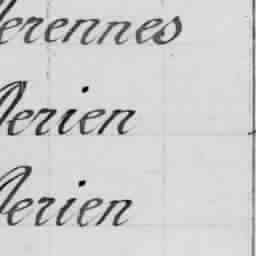 erennes
erien
erien